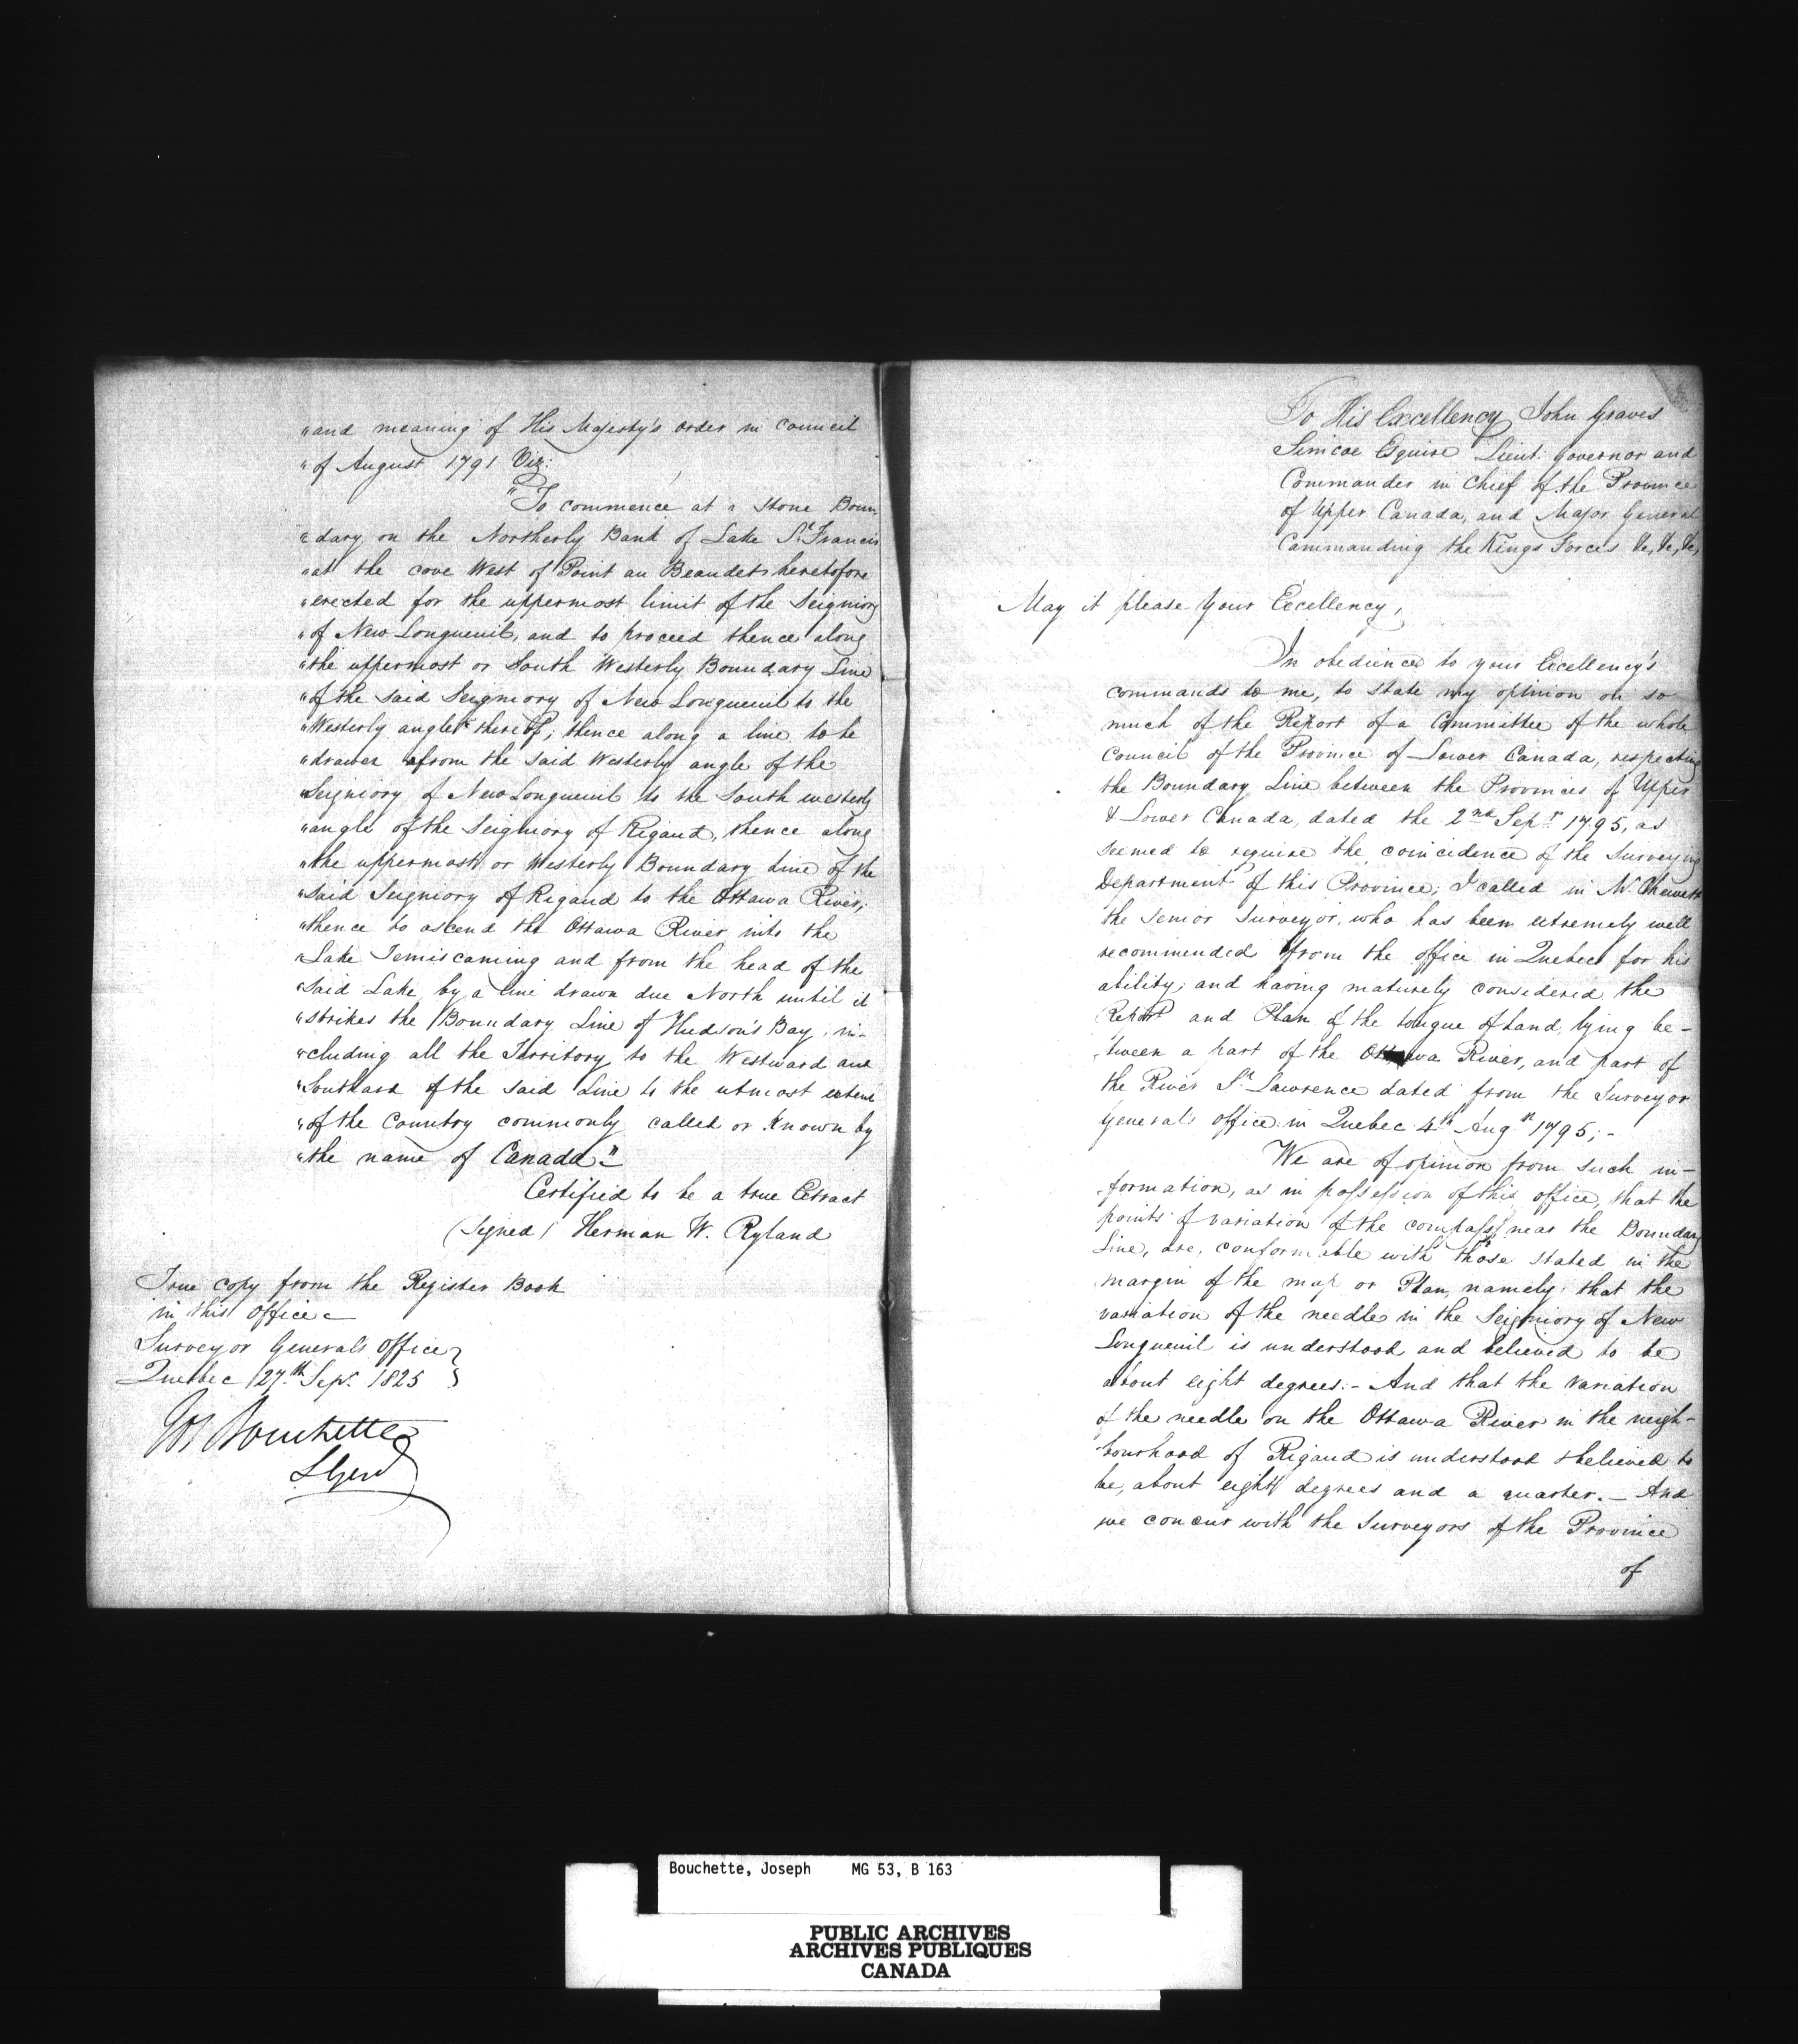 "and meaning of His Majesty's order in Council
"of August 1791 Viz:
"To commence at a stone Boun-
"dary on the Northerly Bank of Lake St Francis
"at the cove West of Point au Beaudet heretofore
"erected for the uppermost limit of the Seigniory
"of New Longueuil, and to proceed thence along
"the uppermost or South Westerly Boundary Line
"of the said Seigniory of New Longueuil to the
"Westerly angle thereof; thence along a line to be
"drawn from the said Westerly angle of the
"Seigniory of New Longueuil to the South westerly
"angle of the Seigniory of Rigaud, thence along
"the uppermost or Westerly Boundary line of the
"said Seigniory of Rigaud to the Ottawa River;
"thence to ascend the Ottawa River into the
"Lake Temiscaming and from the head of the
"said Lake by a line drawn due North until it
"strikes the Boundary Line of Hudson's Bay, in-
"cluding all the Territory to the Westward and
"Southard of the said Line to the utmost extent
"of the Country commonly called or known by
"the name of Canada"
Certified to be a true Extract
(Signed) Herman W. Ryland
True copy from the Register Book
in this Office
Surveyor Generals Office
Quebec 27th Sepr. 1825
Jos Bouchette
S Genl
To His Excellency John Graves
Simcoe Esquire Lieut: Governor and
Commander in Chief of the Province
of Upper Canada, and Major General
Commanding the Kings Forces &c, &c, &c,
May it please Your Excellency,
In obedience to your Excellency's
commands to me, to state my opinion on so
much of the Report of a Committee of the whole
Council of the Province of Lower Canada, respecting
the Boundary Line between the Provinces of Upper
& Lower Canada, dated the 2nd Sepr 1795, as
seemed to require the coincidence of the Surveying
Department of this Province; I called in Mr. Chewett
the Senior Surveyor, who has been extremely well
recommended from the office in Quebec for his
ability; and having maturely considered the
Report and Plan of the tongue of Land, lying be-
tween a part of the Ottawa River, and part of
the River St Lawrence dated from the Surveyor
Generals office in Quebec 4th Augst 1795; -
We are of opinion from such in-
-formation, as in possession of this office, that the
points of variation of the compass near the Boundary
Line, are, conformable with those stated in the
margin of the map or Plan, namely, that the
variation of the needle in the Seigniory of New
Longueuil is understood and believed to be
about eight degrees:- And that the Variation
of the needle on the Ottawa River in the neigh-
bourhood of Rigaud is understood & believed to
be, about eight degrees and a quarter. - And
we concur with the Surveyors of the Province
of
Bouchette, Joseph MG 53, B 163
PUBLIC ARCHIVES
ARCHIVES PUBLIQUES
CANADA